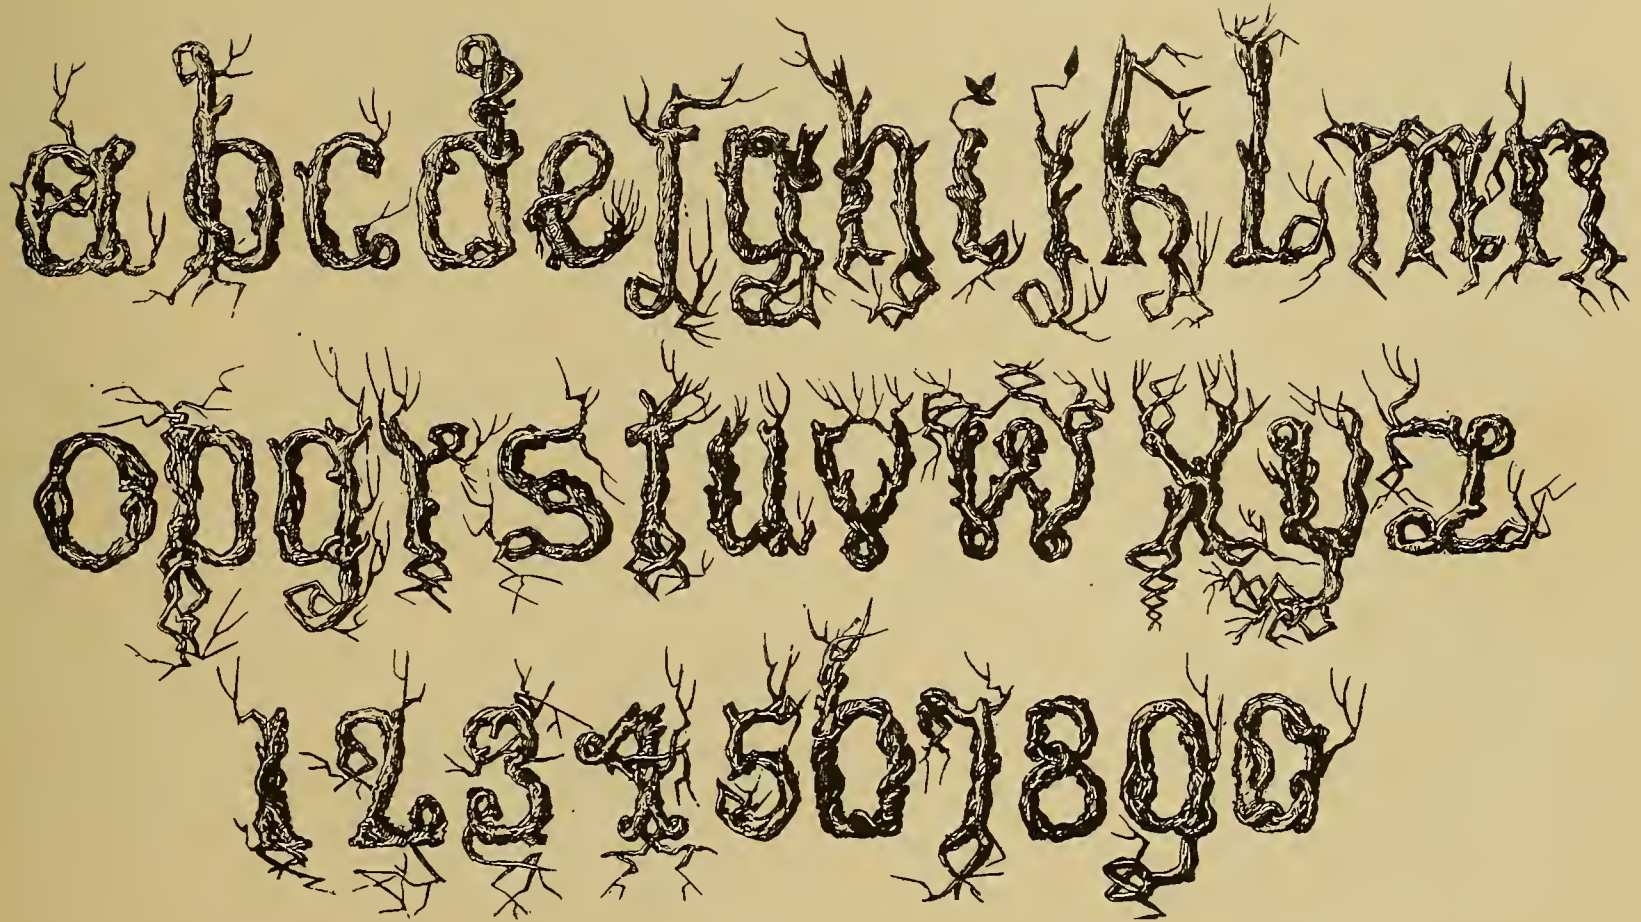 abcdefghijklmn
opqrstuvwxyz
1234567890